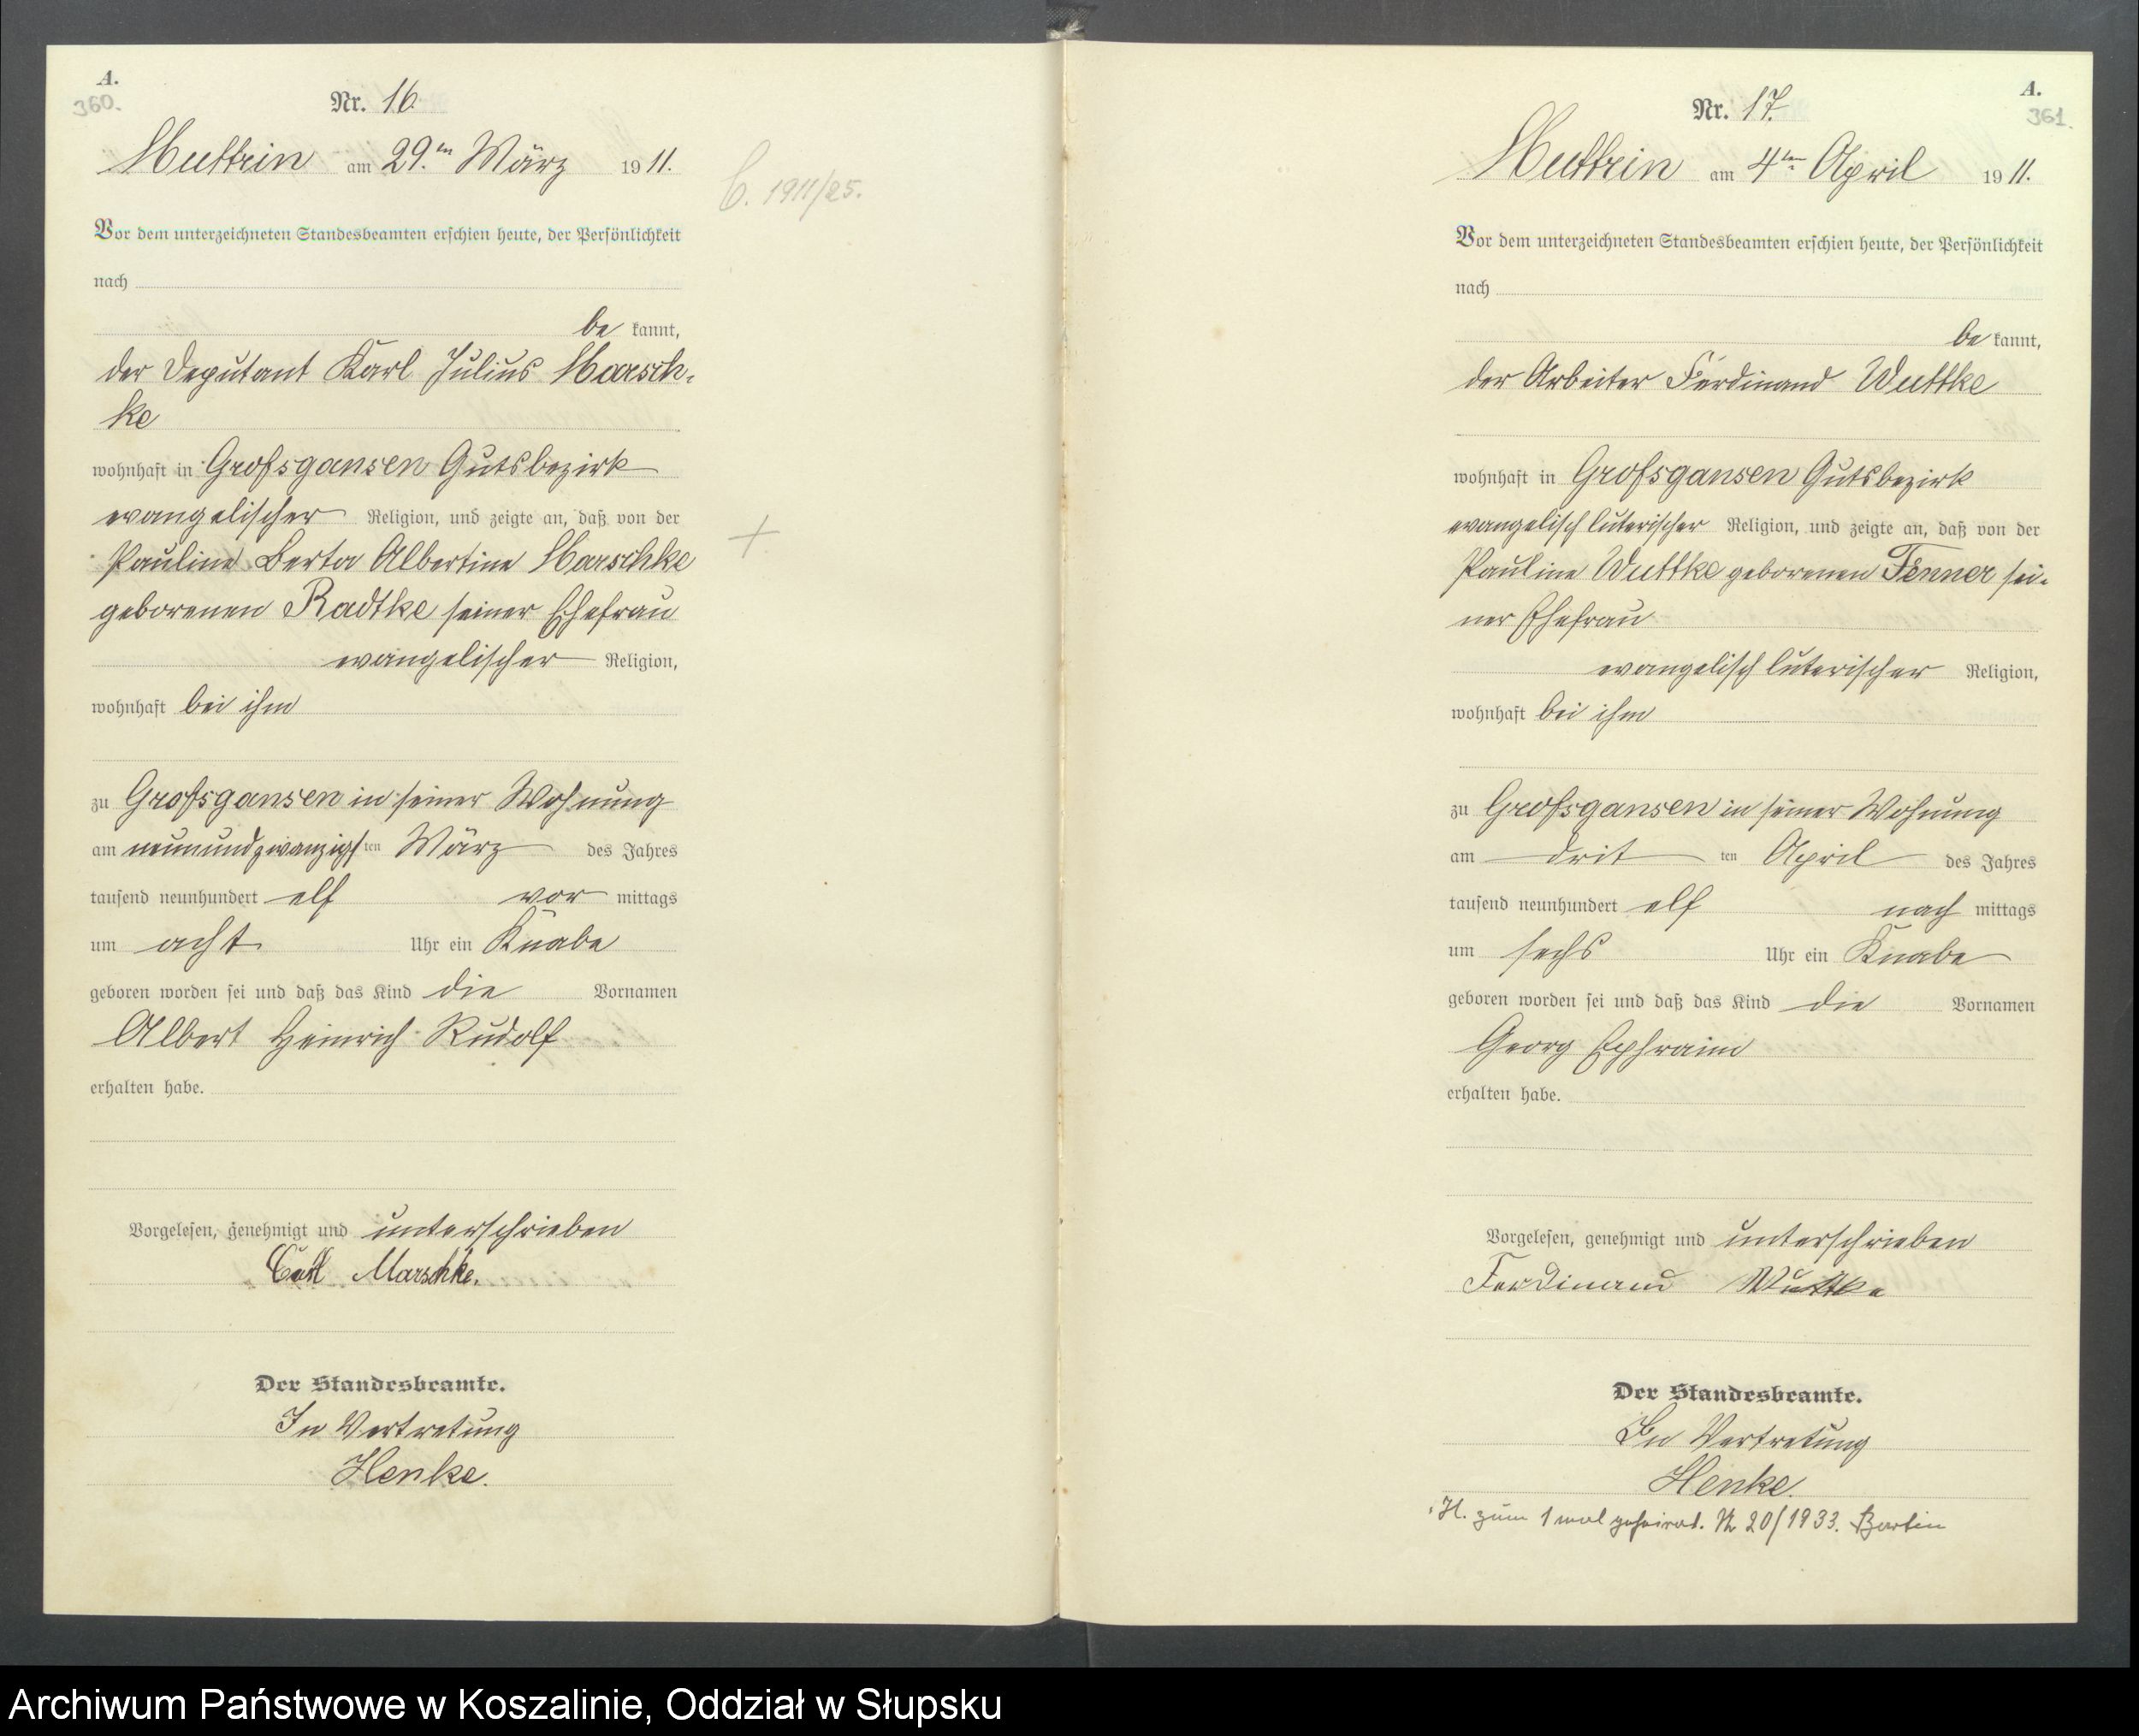 A.
360.
Nr. 16.
Muttrin am 29.ten März 1911.
C. 1911/25.
Vor dem unterzeichneten Standesbeamten erschien heute, der Persönlichkeit
nach
be kannt,
der Deputant Karl Julius Marsch-
ke
wohnhaft in Großgansen Gutsbezirk
evangelischer Religion, und zeigte an, daß von der
Pauline Berta Albertine Marschke
geborenen Radtke seiner Ehefrau
evangelischer Religion,
wohnhaft bei ihm
zu Großgansen in seiner Wohnung
am neunundzwanzigsten März des Jahres
tausend neunhundert elf vor mittags
um acht Uhr ein Knabe
geboren worden sei und daß das Kind die Vornamen
Albert Heinrich Rudolf
erhalten habe.
Vorgelesen, genehmigt und unterschrieben
Carl Marschke.
Der Standesbeamte.
In Vertretung
Henke.
A.
361.
Nr. 17.
Muttrin am 4ten April 1911.
Vor dem unterzeichneten Standesbeamten erschien heute, der Persönlichkeit
nach
be kannt,
der Arbeiter Ferdinand Wuttke
wohnhaft in Großgansen Gutsbezirk
evangelisch luterischer Religion, und zeigte an, daß von der
Pauline Wuttke geborenen Fenner sei-
ner Ehefrau
evangelisch luterischer Religion,
wohnhaft bei ihm
zu Großgansen in seiner Wohnung
am drit ten April des Jahres
tausend neunhundert elf nach mittags
um sechs Uhr ein Knabe
geboren worden sei und daß das Kind die Vornamen
Georg Ephraim
erhalten habe.
Vorgelesen, genehmigt und unterschrieben
Ferdinand Wuttke
Der Standesbeamte.
In Vertretung
Henke.
H. zum 1 mal geheirat. Nr 20/1933. Bartin
Archiwum Państwowe w Koszalinie, Oddział w Słupsku